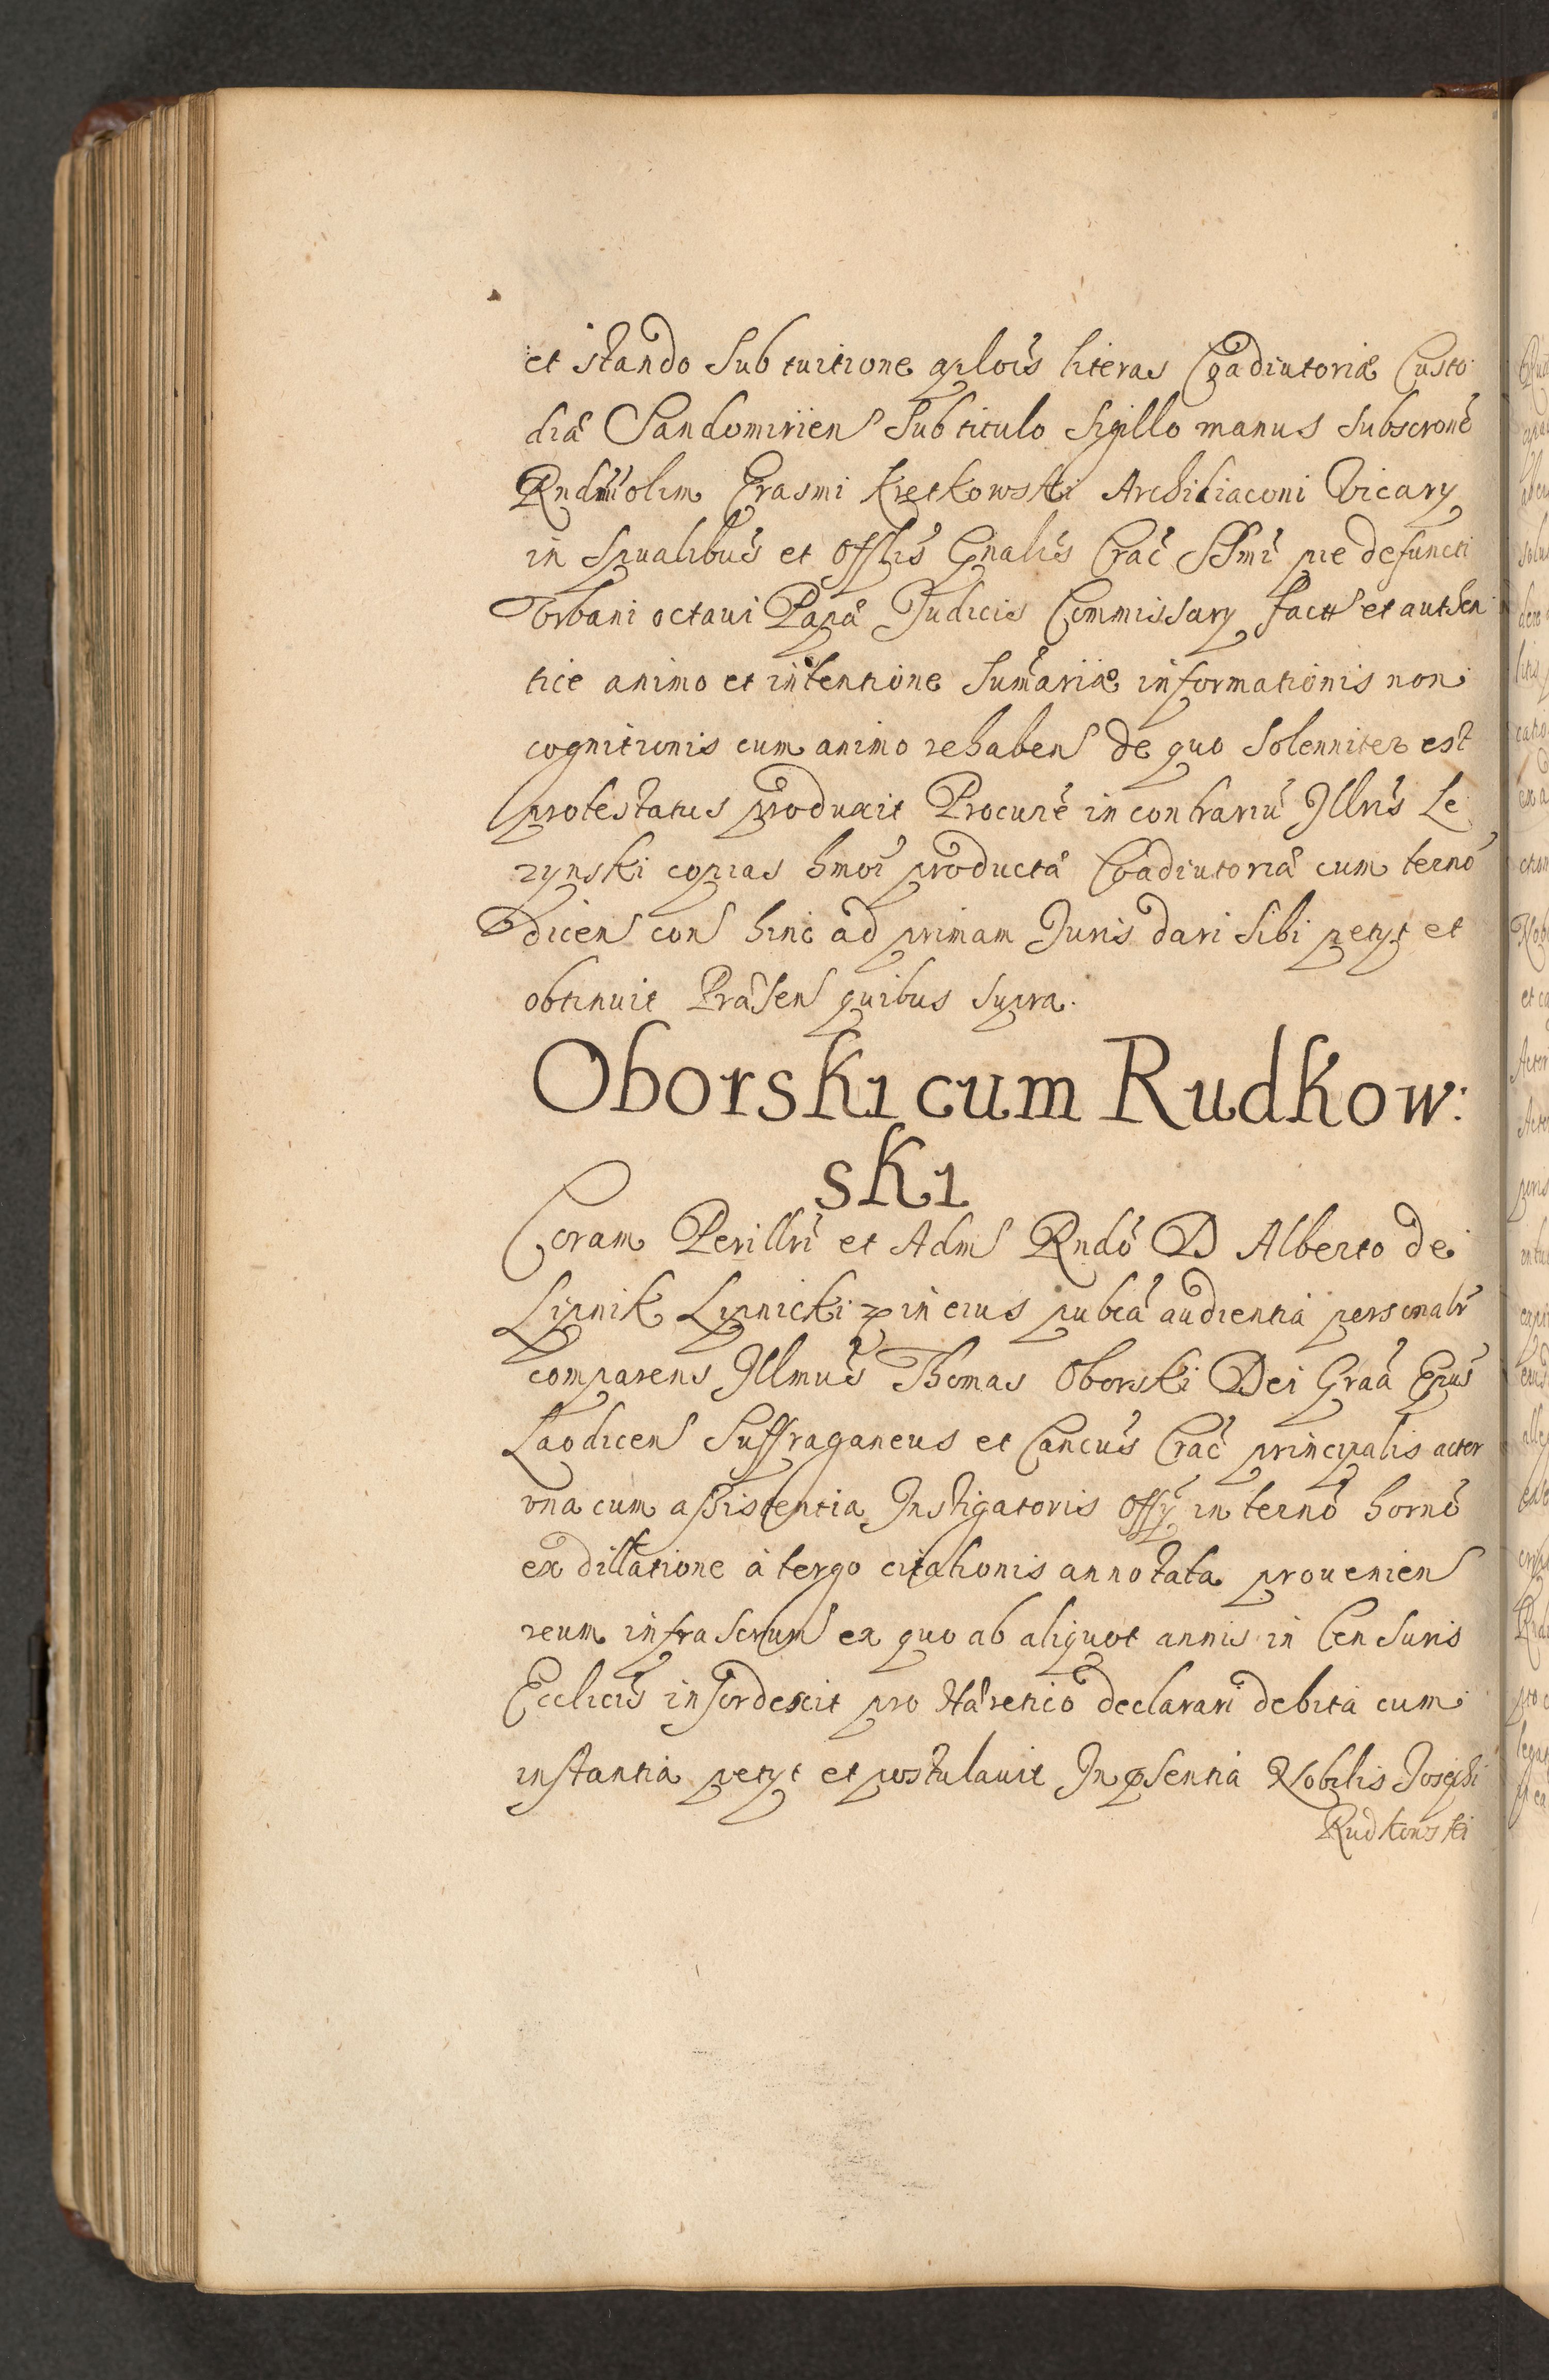 et stando Sub tuitione qłois literas Coadiutoriæ Custo:
diæ Sandomirien Sub titulo Sigillo manus Subscrone
Rndmi olim Erasmi Kretkowski Archidiaconi Vicarÿ
in Spualibus et Offlis Gnalis Crac SSmi pie defuncti
Vrbani octaui Papæ Judicis Commissarÿ fact et authen
tice animo et intentione Sumariæ informationis non
cognitionis cum animo rehaben de quo Solenniter est
protestatus produxit Procure in contrariu Illris Le
zynski copias hmoi productæ Coadiutoriæ cum termo
dicen con hinc ad primam Juris dari Sibi petÿt et
obtinuit Præsen quibus Supra.
Oborski cum Rudkow:
ski
Coram Perillri et Adm Rndo D Alberto de
Lipnik Lipnicki in eius pubca audientia personalr
comparens Illmus Thomas Oborski Dei Graa Epus
Laodicen Suffraganeus et Cancus Crac principalis actor
vna cum assistentia Instigatoris Offÿ in termo horno
ex dillatione a tergo citationis annotata prouenien
reum infrascrum ex quo ab aliquot annis in Censuris
Ecclicis insorduit pro Hæretico declarari debita cum
instantia petÿt et postulauit In psentia Nobilis Josephi
Rudkowski